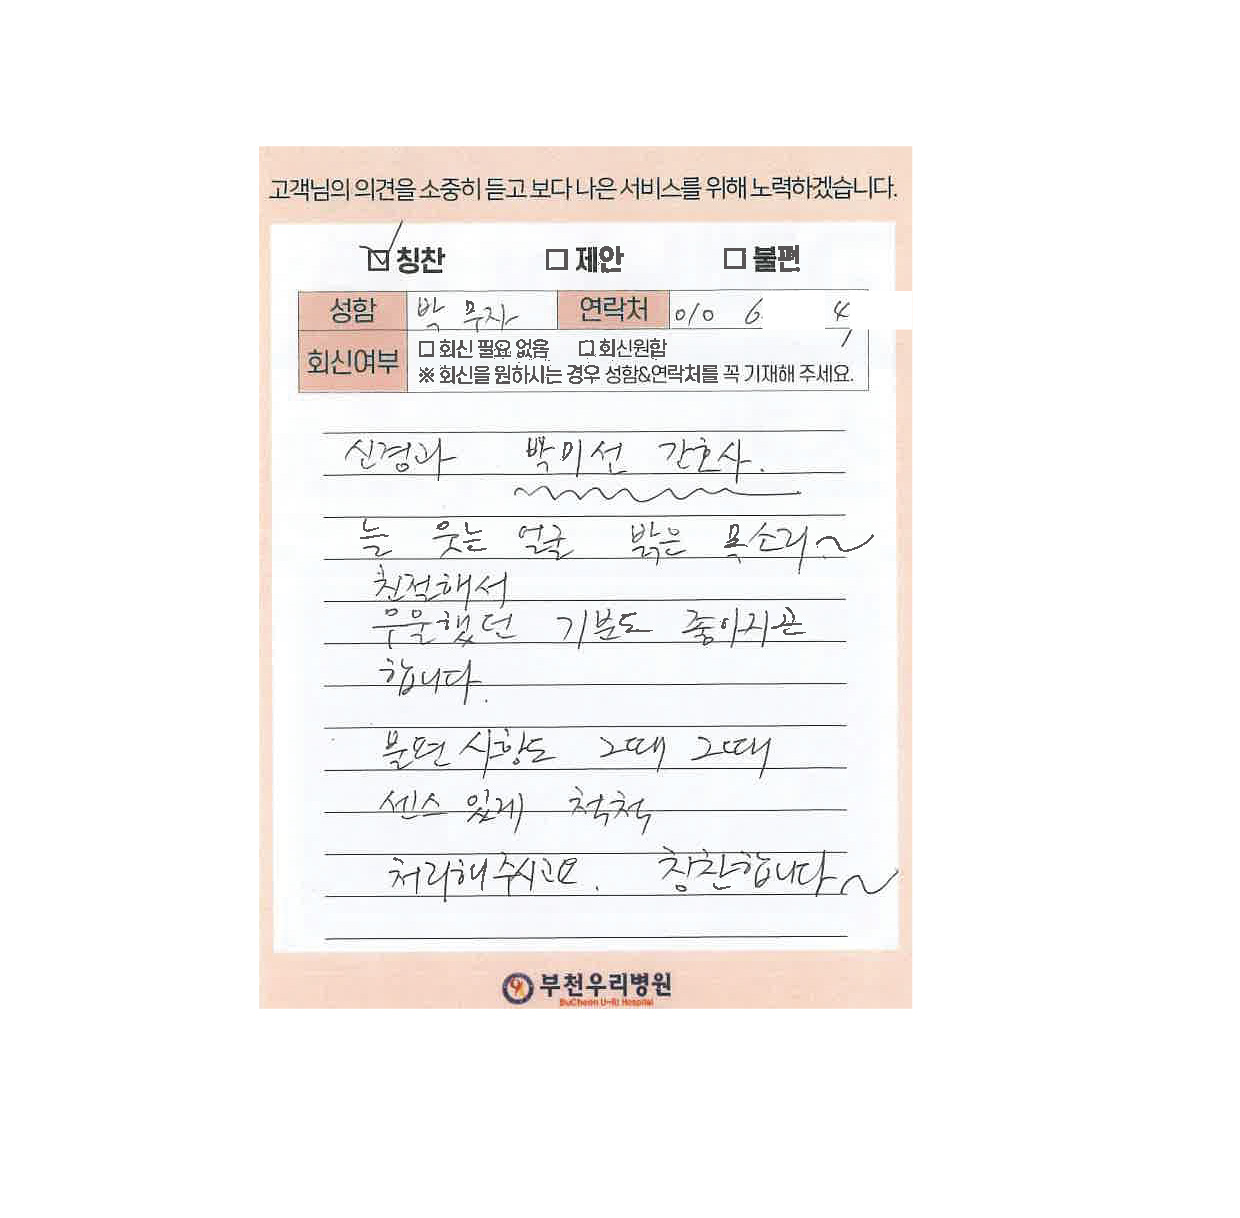 고객님의 의견을 소중히 듣고 보다 나은 서비스를 위해 노력하겠습니다.
칭찬 제안 불편
성함 박 연락처 010 6 4
회신여부 회신 필요 없음 회신원함
※ 회신을 원하시는 경우 성함&연락처를 꼭 기재해 주세요.
신경과 박미선 간호사.
늘 웃는 얼굴 밝은 목소리~
친절해서
우울했던 기분도 좋아지곤
합니다.
불편 사항도 그때 그때
센스 있게 척척
처리해 주시고요. 칭찬합니다~
부천우리병원
BuCheon U-Ri Hospital